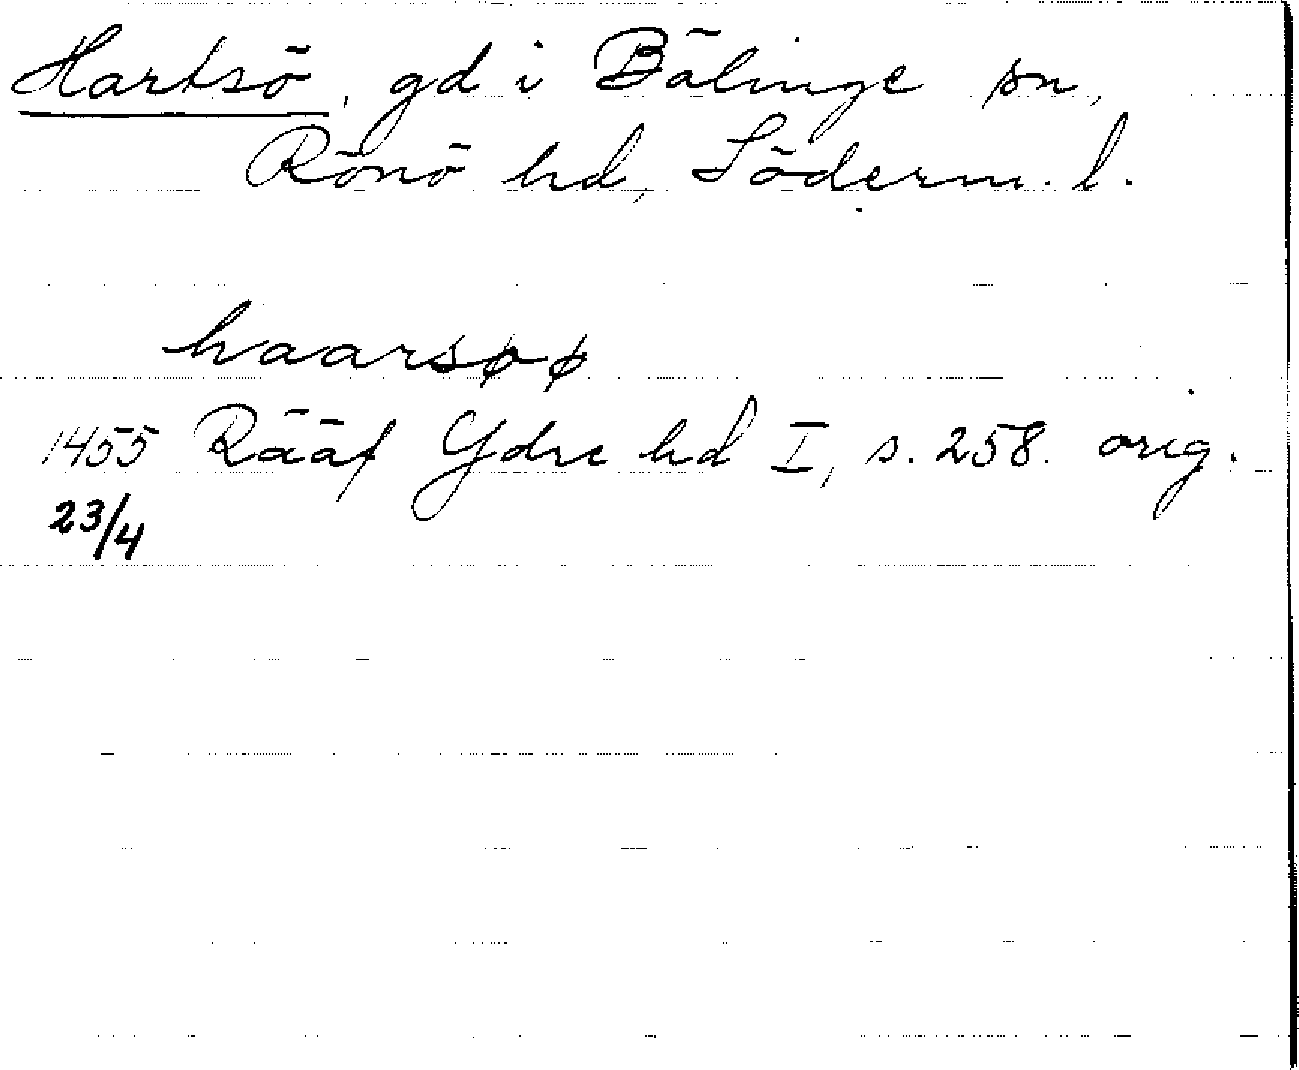 Hartsö, gd i Bälinge sn,
Rönö hd, Söderm. l.
haarsøø
1455 Rääf Ydre hd I, s. 258. orig.
23/4